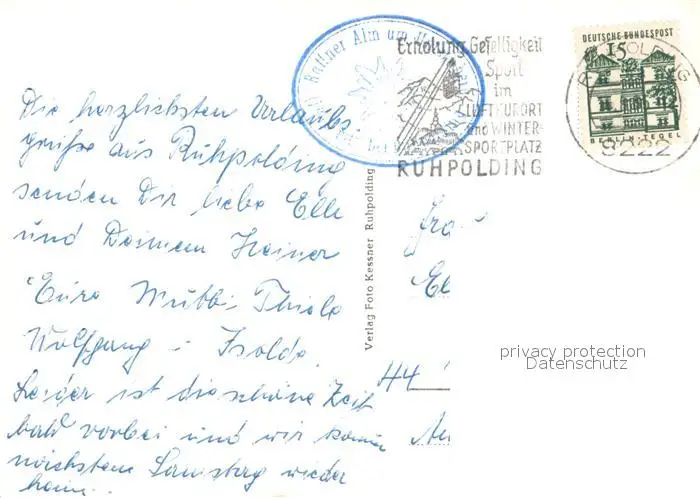 Die herzlichsten Urlaubs
grüße aus Ruhpolding
senden Dir liebe Elle
und Deinem Heiner
Eure Mutti, Thiele
Wolfgang - Isolde.
Leider ist die schöne Zeit
bald vorbei und wir komm
nächsten Samstag wieder
heim.
Rattner Alm am
Erholung Geselligkeit
Sport
im
LUFTKURORT
und WINTER-
SPORTPLATZ
RUHPOLDING
DEUTSCHE BUNDESPOST
15
BERLIN-TEGEL
8222
Verlag Foto Kessner Ruhpolding
Fra
El
44
privacy protection
Datenschutz